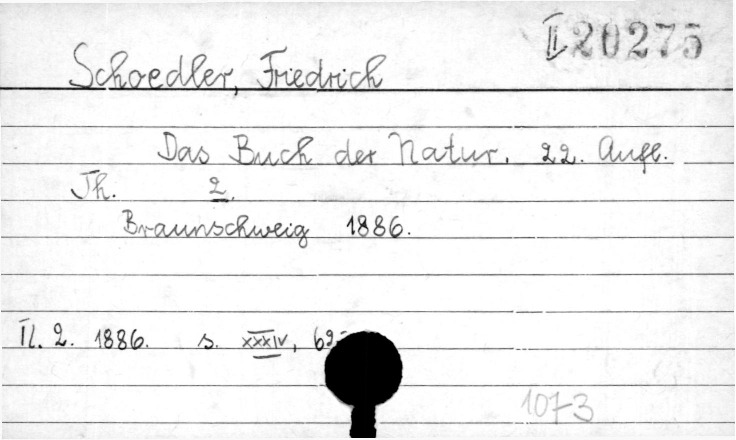 II 20275
Schoedler, Friedrich
Das Buch der Natur. 22. Aufl.
Th. 2.
Braunschweig 1886.
Tl. 2. 1886. s. XXXIV,
1073